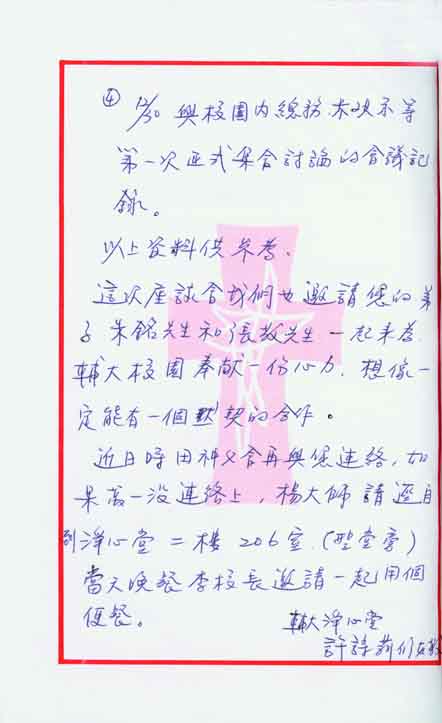 ④ 9/30 與校園內總務
第一次正式集合討論的會議記
錄。
以上資料供參考.
這次座談會我們也邀請您的弟
子朱銘先生和張敬先生一起來為
輔大校園奉献一份心力. 想像一
定能有一個默契的合作。
近日時田神父會再與您連絡, 如
果萬一沒連絡上, 楊大師請逕自
到淨心堂二樓 206室. (聖堂旁)
當天晚餐李校長邀請一起用個
便餐。
輔大淨心堂
許詩莉